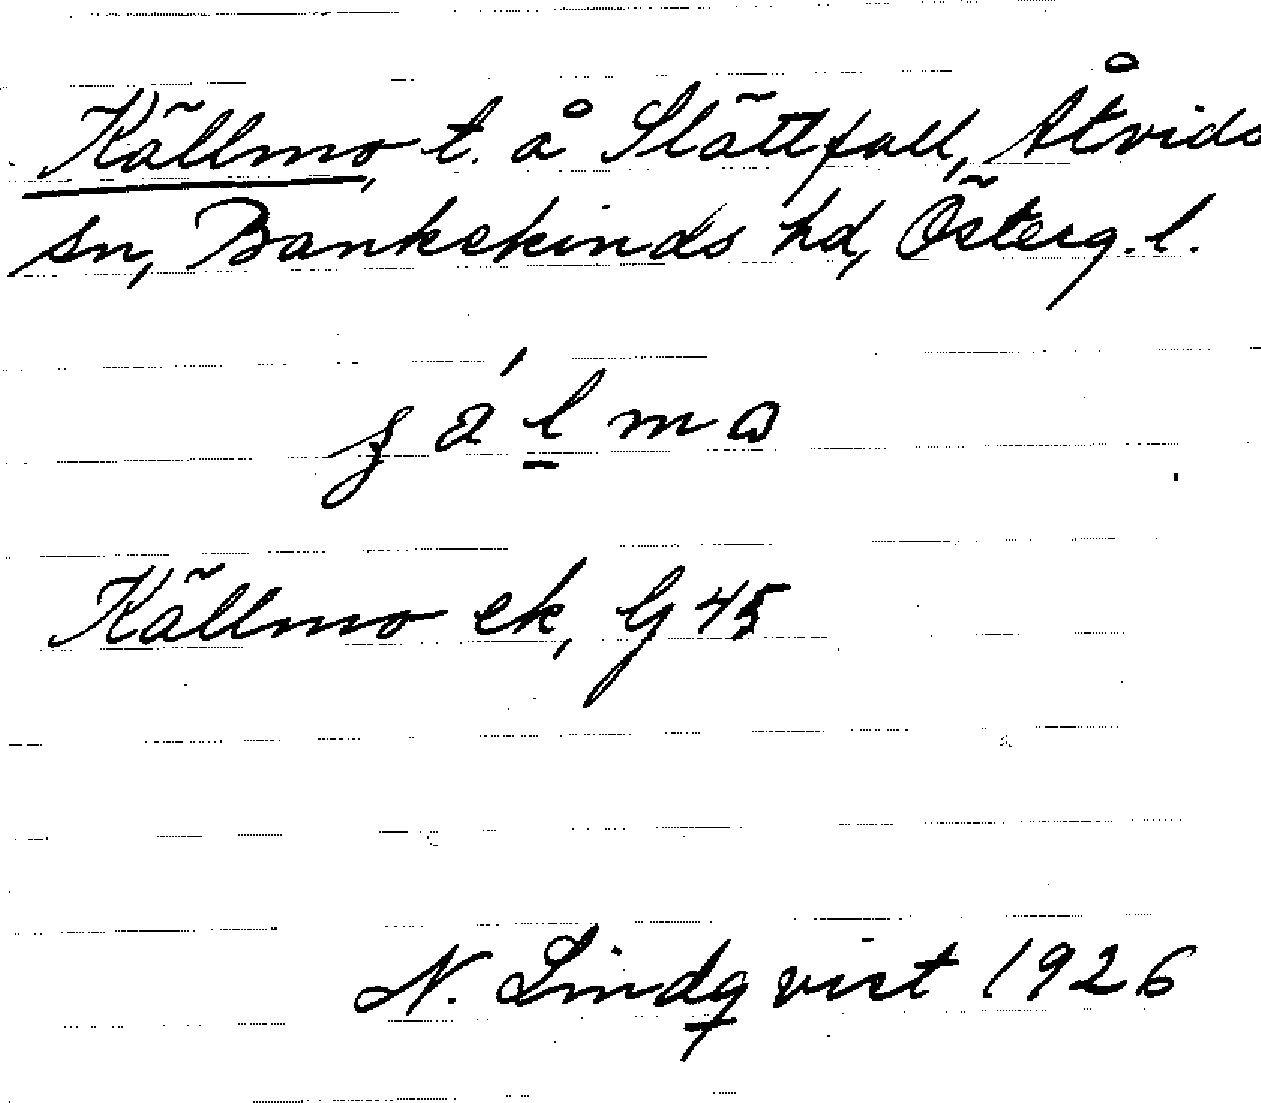 Källmo, t. å Slättfall, Åtvids
sn, Bankekinds hd, Österg. l.
Källmo ek, G 45
N. Lindqvist 1926